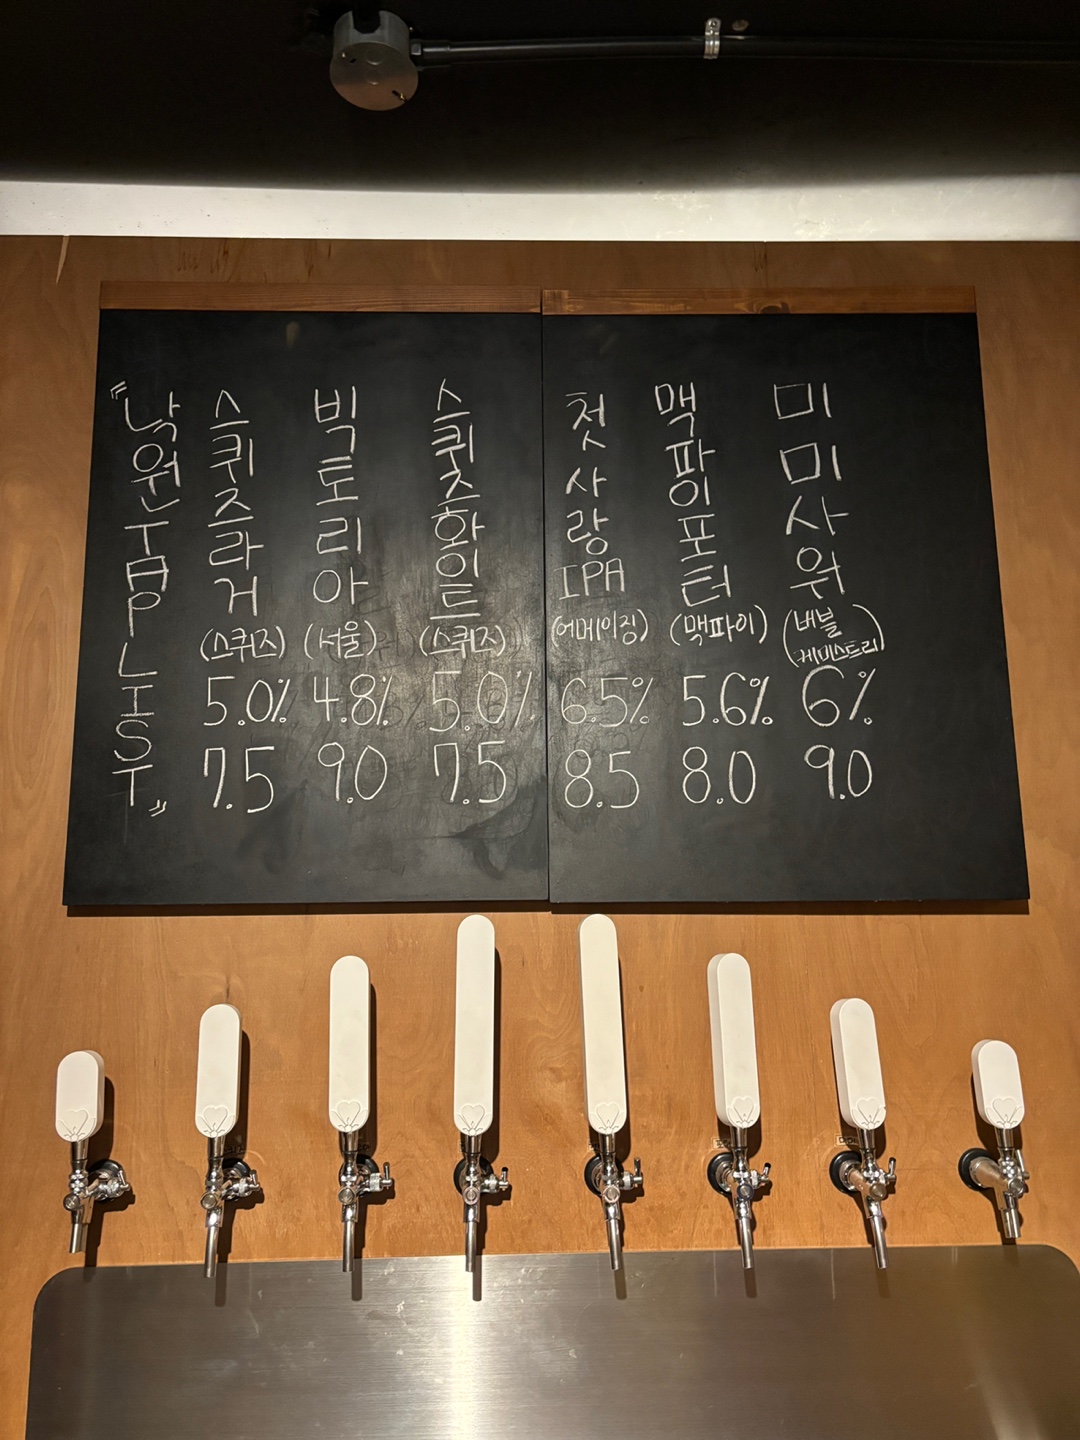 "낙원 TAP LIST"
스퀴즈라거
(스퀴즈)
5.0%
7.5
빅토리아
(서울)
4.8%
9.0
스퀴즈화이트
(스퀴즈)
5.0%
7.5
첫사랑 IPA
(어메이징)
6.5%
8.5
맥파이포터
(맥파이)
5.6%
8.0
미미사워
(버블
케미스트리)
6%
9.0